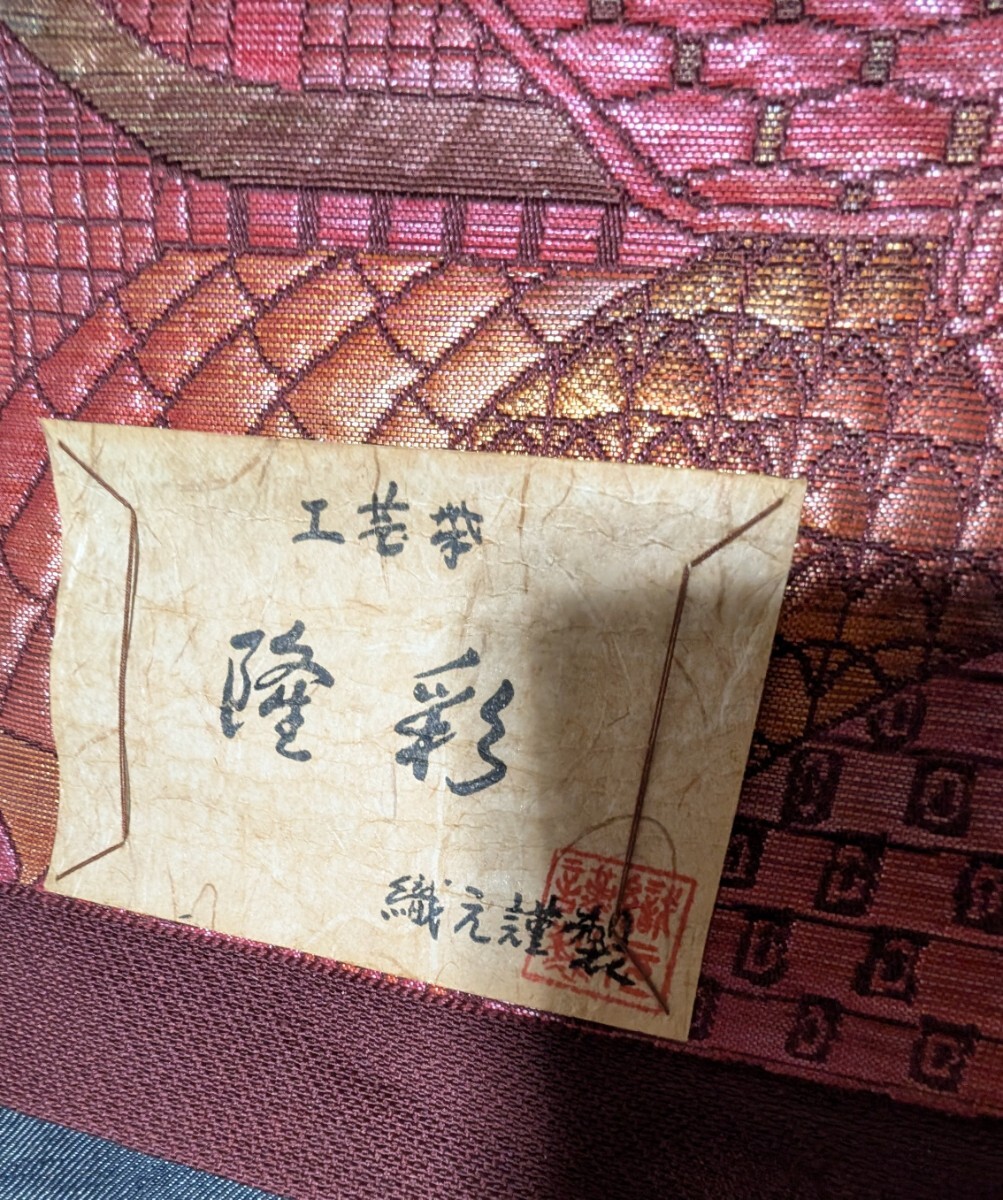 工芸帯
隆彩
織元謹製